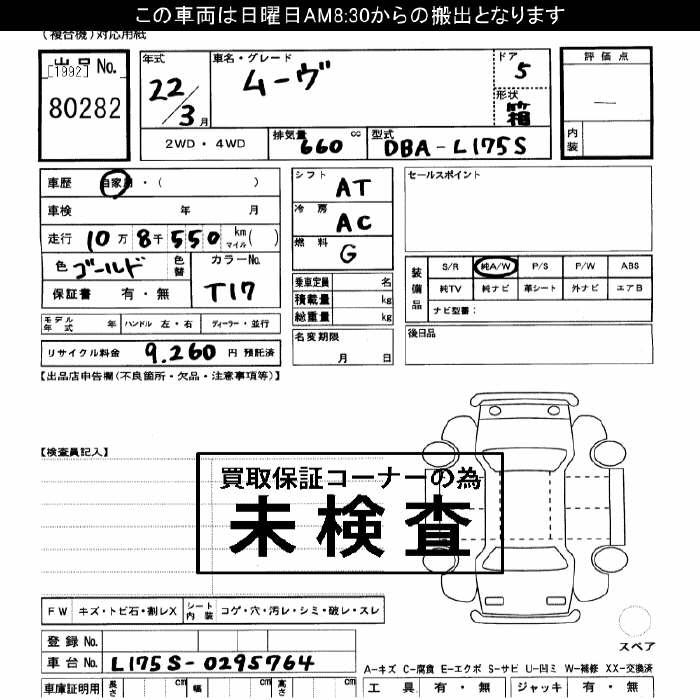 この車両は日曜日AM8:30からの搬出となります
(複合機)対応用紙
出品No. [1992]
80282
年式 22/3月
車名・グレード ムーヴ
ドア 5
形状 箱
評価点 —
内装
2WD・4WD
排気量 660 cc
型式 DBA-L175S
車歴 自家用・( )
車検 年 月
走行 10万8千550 km マイル( )
色 ゴールド 色替
カラーNo. T17
保証書 有・無
シフト AT
冷房 AC
燃料 G
乗車定員 名
積載量 kg
総重量 kg
セールスポイント
装備品 S/R 純A/W P/S P/W ABS
純TV 純ナビ 革シート 外ナビ エアB
ナビ型番:
モデル年式 年 ハンドル 左・右 ディーラー・並行
名変期限 月 日
後日品
リサイクル料金 9,260 円 預託済
【出品店申告欄(不良箇所・欠品・注意事項等)】
【検査員記入】
買取保証コーナーの為
未検査
FW キズ・トビ石・割レX シート内装 コゲ・穴・汚レ・シミ・破レ・スレ
スペア
登録No.
車台No. L175S-0295764
A-キズ C-腐食 E-エクボ S-サビ U-凹ミ W-補修 XX-交換済
車庫証明用 長さ cm 幅 cm 高さ cm
工具 有・無 ジャッキ 有・無